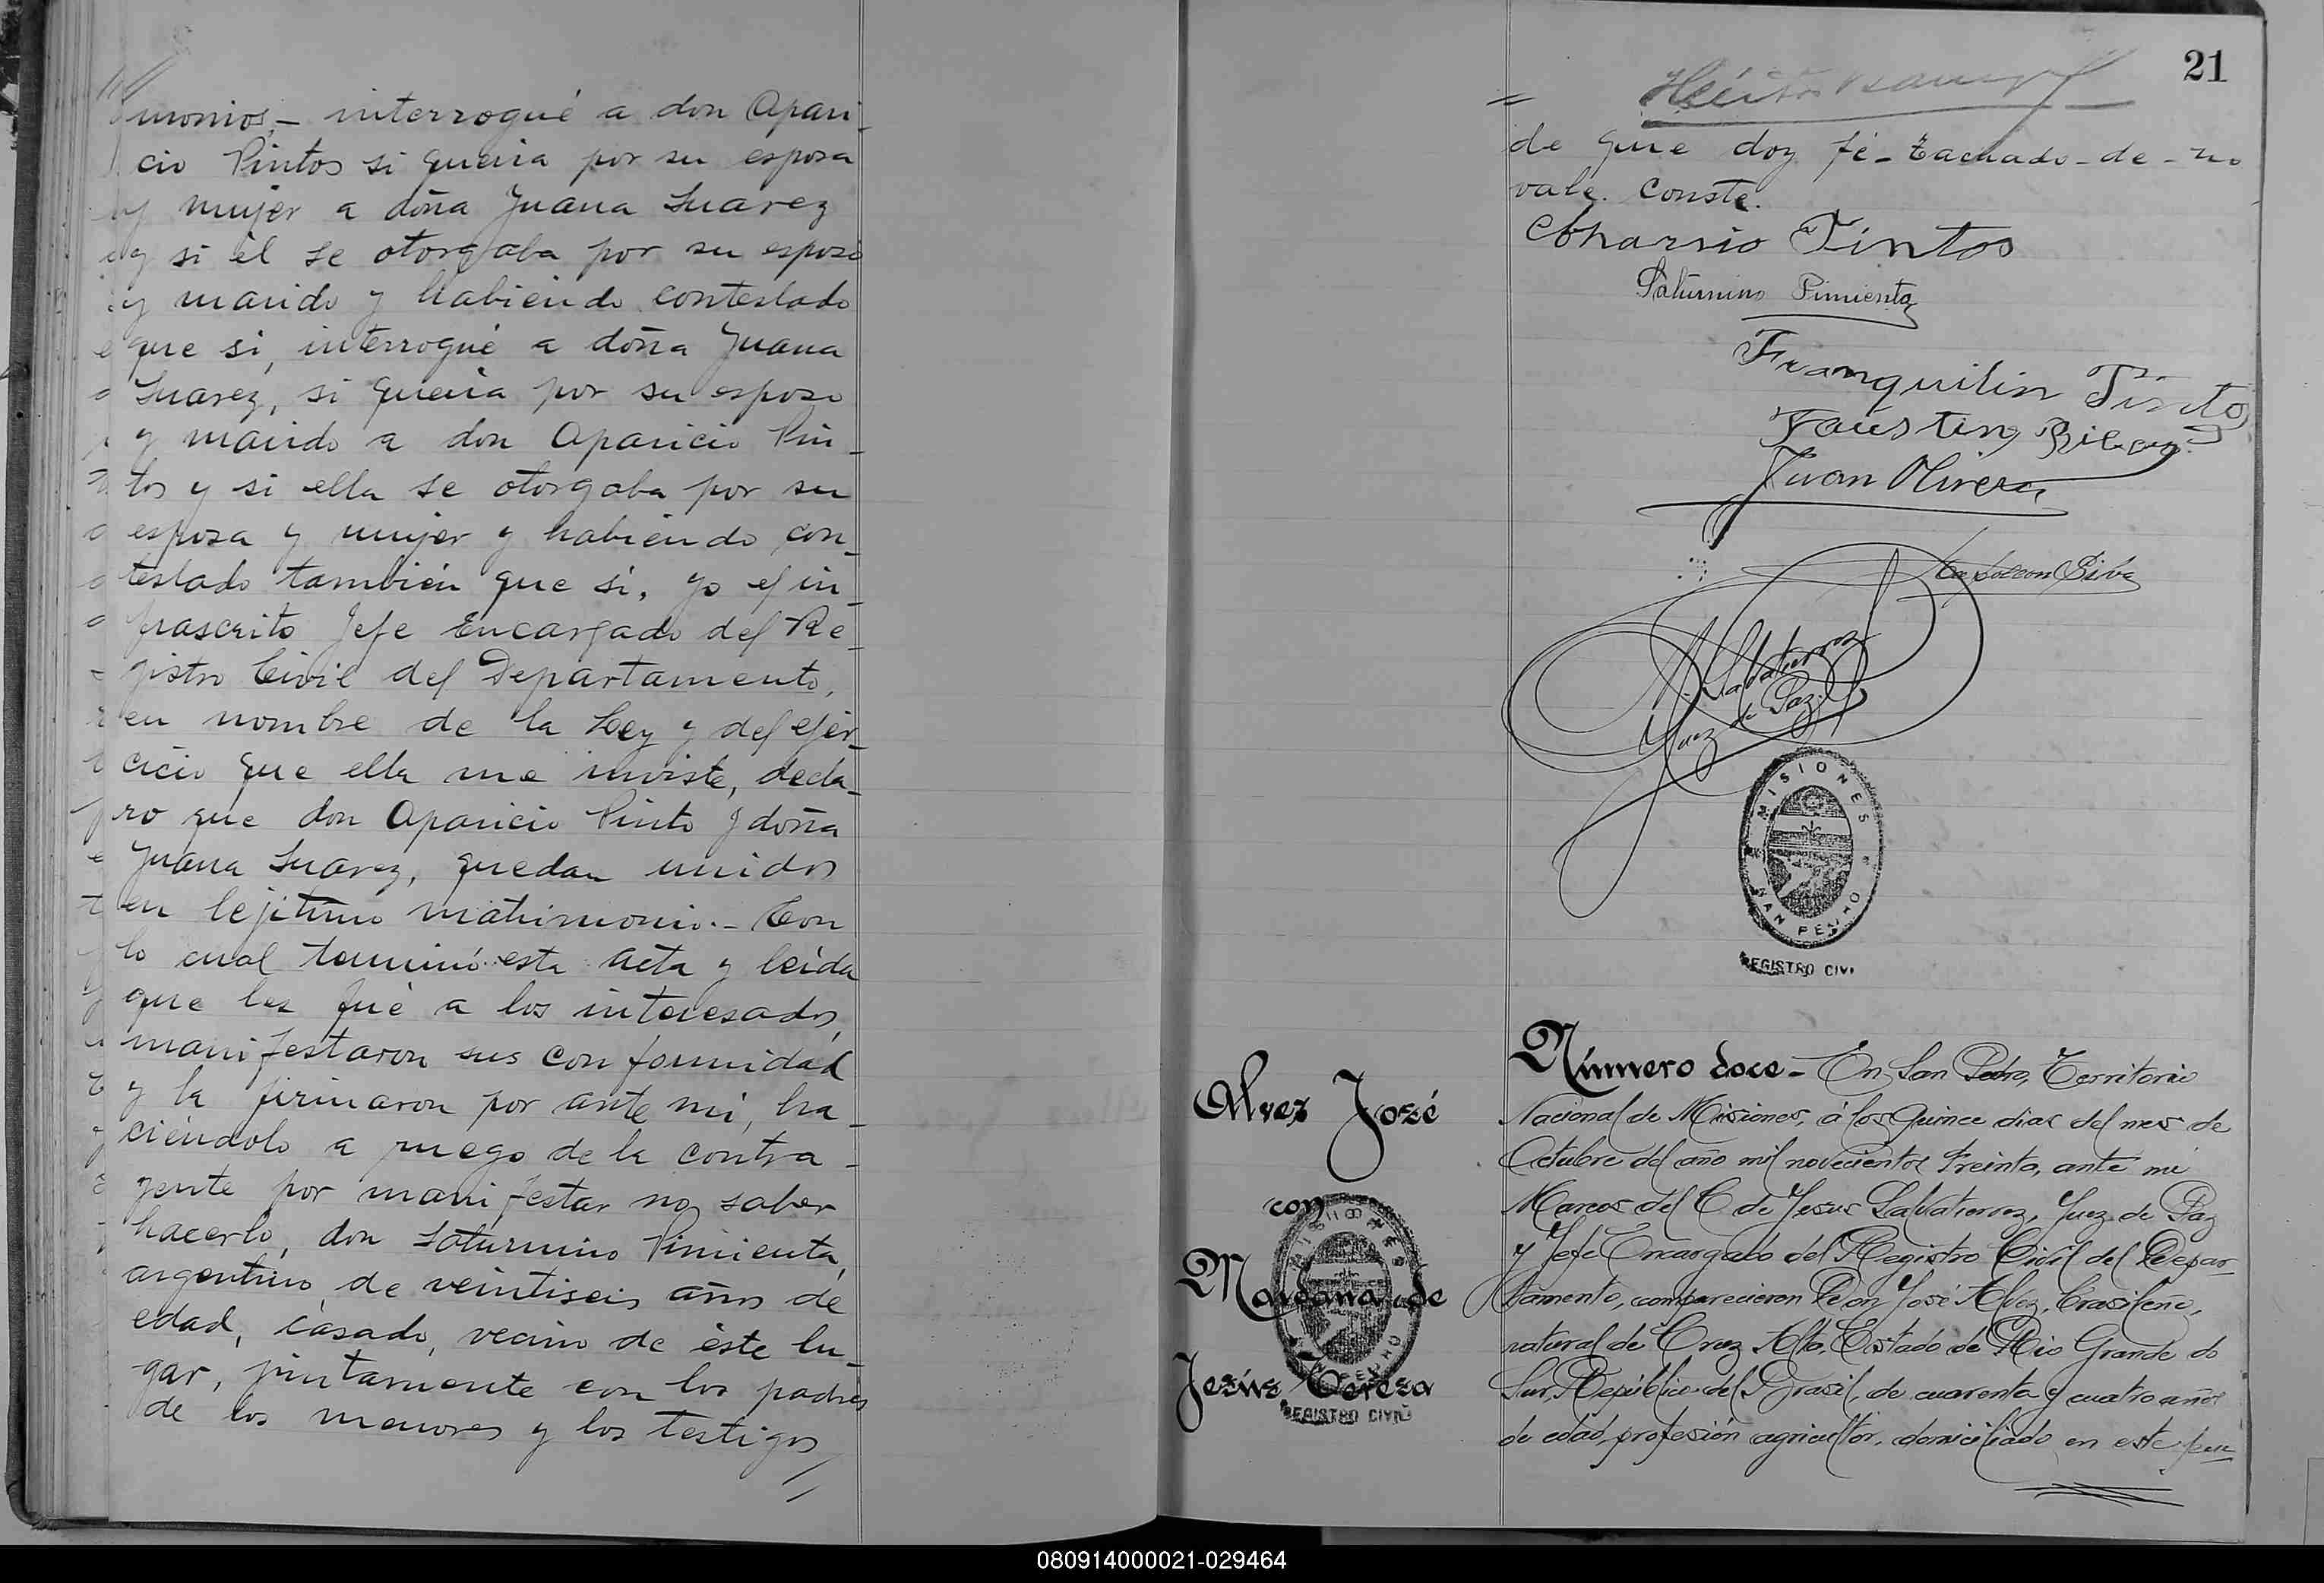 monios,- interrogué a don Apari-
cio Pintos si queria por su esposa
y mujer a doña Juana Suarez
y si él se otorgaba por su esposo
y marido y habiendo contestado
que si, interrogué a doña Juana
Suarez, si queria por su esposo
y marido a don Aparicio Pin-
tos y si ella se otorgaba por su
esposa y mujer y habiendo con-
testado también que si, yo el in-
frascrito Jefe Encargado del Re-
gistro Civil del Departamento,
en nombre de la Ley y del ejer-
cicio que ella me inviste, decla-
ro que don Aparicio Pinto y doña
Juana Suarez, quedan unidos
en lejitimo matrimonio.- Con
lo cual terminó esta acta y leída
que les fué a los interesados,
manifestaron sus conformidad
y la firmaron por ante mi, ha-
ciéndolo a ruego de la contra-
yente por manifestar no saber
hacerlo, don Saturnino Pimienta,
argentino, de veintiseis años de
edad, casado, vecino de éste lu-
gar, juntamente con los padres
de los menores y los testigos
21
de que doy fé- tachado-de-no
vale. Conste.
Pintos
Saturnino Pimienta
Franquilin Pinto
Faustino
Juan Olivera
Silva
M. Salvatierrez
Juez de Paz
MISIONES
SAN PEDRO
REGISTRO CIVIL
Alvez José
con
Mariana de
Jesús Tereza
MISIONES
SAN PEDRO
REGISTRO CIVIL
Número doce- En San Pedro, Territorio
Nacional de Misiones, á los quince dias del mes de
Octubre del año mil novecientos treinta, ante mi
Marcos del C. de Jesus Salvatierrez, Juez de Paz
y Jefe Encargado del Registro Civil del Depar-
tamento, comparecieron Don José Alvez, brasileño,
natural de Cruz Alta, Estado de Rio Grande do
Sur, República del Brasil, de cuarenta y cuatro años
de edad, profesión agricultor, domiciliado en este pue-
080914000021-029464